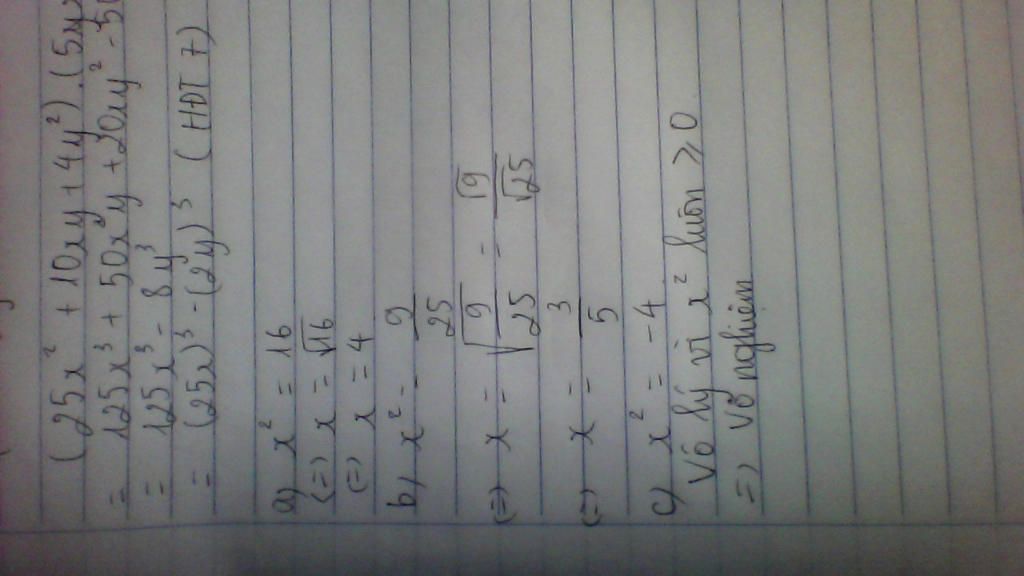 (25x² + 10xy + 4y²).(5x
= 125x³ + 50x²y + 20xy² - 50
= 125x³ - 8y³
= (25x)³ - (2y)³ (HĐT 7)
a) x² = 16
(=) x = √16
(=) x = 4
b) x² = 9/25
(=) x = √(9/25) = √9/√25
(=) x = 3/5
c) x² = -4
Vô lý vì x² luôn ≥ 0
=) vô nghiệm